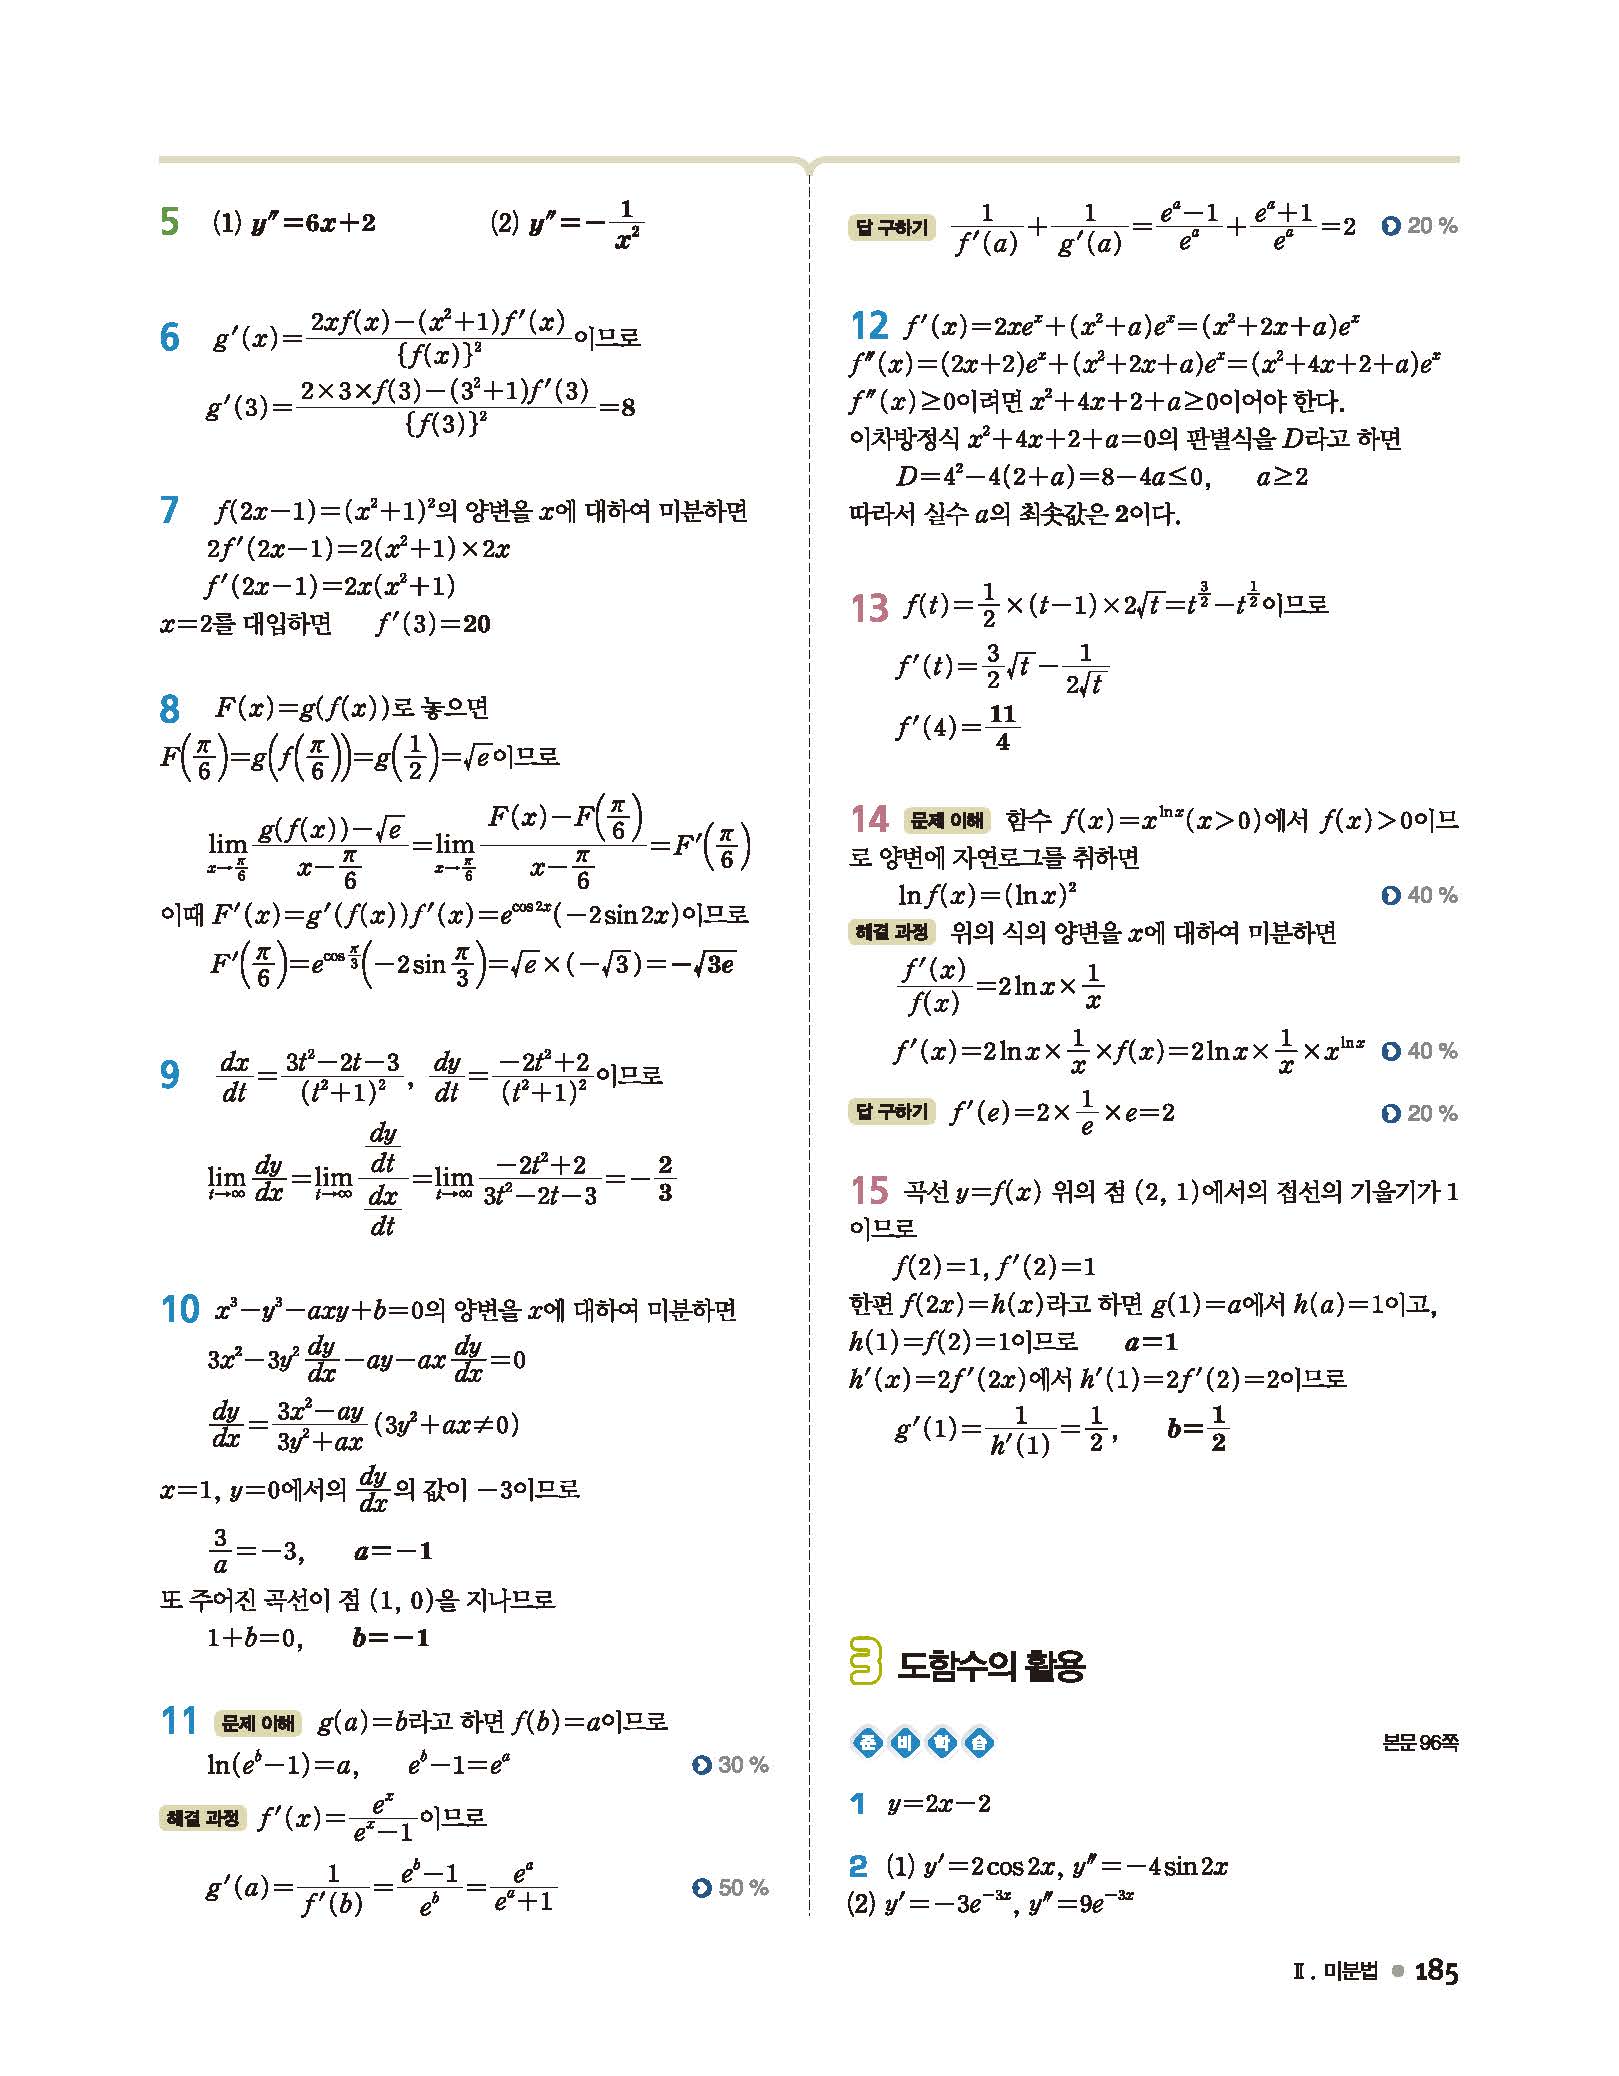 5 (1) y″=6x+2 (2) y″=−1/x²
6 g′(x)={2xf(x)−(x²+1)f′(x)}/{f(x)}²이므로
g′(3)={2×3×f(3)−(3²+1)f′(3)}/{f(3)}²=8
7 f(2x−1)=(x²+1)²의 양변을 x에 대하여 미분하면
2f′(2x−1)=2(x²+1)×2x
f′(2x−1)=2x(x²+1)
x=2를 대입하면 f′(3)=20
8 F(x)=g(f(x))로 놓으면
F(π/6)=g(f(π/6))=g(1/2)=√e이므로
lim_{x→π/6} (g(f(x))−√e)/(x−π/6)=lim_{x→π/6} (F(x)−F(π/6))/(x−π/6)=F′(π/6)
이때 F′(x)=g′(f(x))f′(x)=e^{cos2x}(−2sin2x)이므로
F′(π/6)=e^{cos π/3}(−2sin π/3)=√e×(−√3)=−√3e
9 dx/dt=(3t²−2t−3)/(t²+1)², dy/dt=(−2t²+2)/(t²+1)²이므로
lim_{t→∞} dy/dx=lim_{t→∞} (dy/dt)/(dx/dt)=lim_{t→∞} (−2t²+2)/(3t²−2t−3)=−2/3
10 x³−y³−axy+b=0의 양변을 x에 대하여 미분하면
3x²−3y² dy/dx−ay−ax dy/dx=0
dy/dx=(3x²−ay)/(3y²+ax) (3y²+ax≠0)
x=1, y=0에서의 dy/dx의 값이 −3이므로
3/a=−3, a=−1
또 주어진 곡선이 점 (1, 0)을 지나므로
1+b=0, b=−1
11 문제 이해 g(a)=b라고 하면 f(b)=a이므로
ln(e^b−1)=a, e^b−1=e^a 30 %
해결 과정 f′(x)=e^x/(e^x−1)이므로
g′(a)=1/f′(b)=(e^b−1)/e^b=e^a/(e^a+1) 50 %
답 구하기 1/f′(a)+1/g′(a)=(e^a−1)/e^a+(e^a+1)/e^a=2 20 %
12 f′(x)=2xe^x+(x²+a)e^x=(x²+2x+a)e^x
f″(x)=(2x+2)e^x+(x²+2x+a)e^x=(x²+4x+2+a)e^x
f″(x)≥0이려면 x²+4x+2+a≥0이어야 한다.
이차방정식 x²+4x+2+a=0의 판별식을 D라고 하면
D=4²−4(2+a)=8−4a≤0, a≥2
따라서 실수 a의 최솟값은 2이다.
13 f(t)=1/2×(t−1)×2√t=t^{3/2}−t^{1/2}이므로
f′(t)=3/2√t−1/(2√t)
f′(4)=11/4
14 문제 이해 함수 f(x)=x^{lnx}(x>0)에서 f(x)>0이므
로 양변에 자연로그를 취하면
ln f(x)=(ln x)² 40 %
해결 과정 위의 식의 양변을 x에 대하여 미분하면
f′(x)/f(x)=2lnx×1/x
f′(x)=2lnx×1/x×f(x)=2lnx×1/x×x^{lnx} 40 %
답 구하기 f′(e)=2×1/e×e=2 20 %
15 곡선 y=f(x) 위의 점 (2, 1)에서의 접선의 기울기가 1
이므로
f(2)=1, f′(2)=1
한편 f(2x)=h(x)라고 하면 g(1)=a에서 h(a)=1이고,
h(1)=f(2)=1이므로 a=1
h′(x)=2f′(2x)에서 h′(1)=2f′(2)=2이므로
g′(1)=1/h′(1)=1/2, b=1/2
3 도함수의 활용
준비학습 본문 96쪽
1 y=2x−2
2 (1) y′=2cos2x, y″=−4sin2x
(2) y′=−3e^{−3x}, y″=9e^{−3x}
Ⅱ. 미분법 ● 185